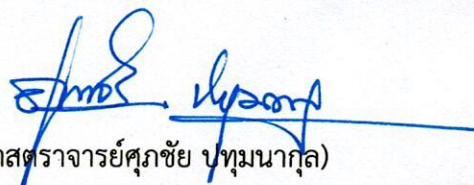 าสตราจารย์ศุภชัย ปทุมนากุล)